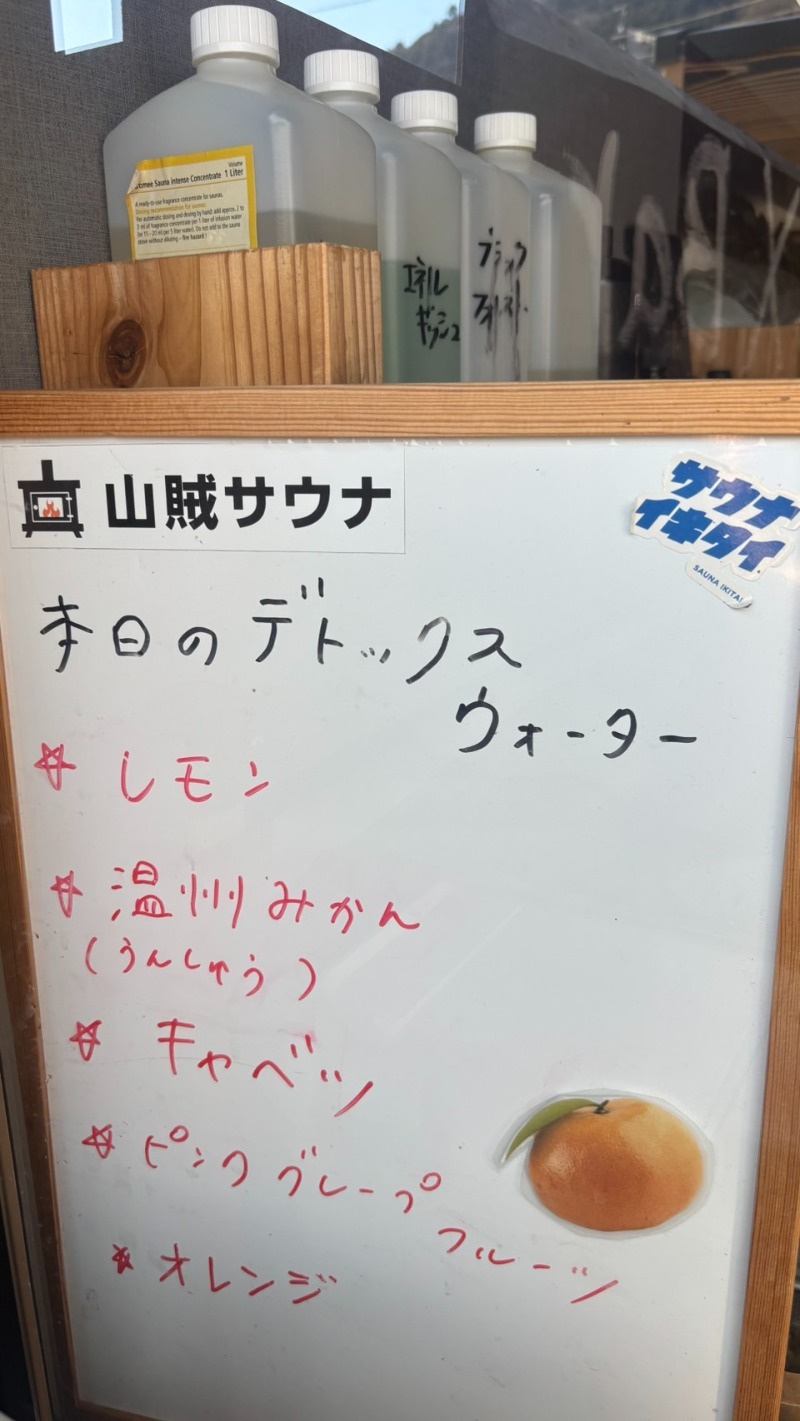 Volume
Sauna Intense Concentrate 1 Liter
A ready-to-use fragrance concentrate for saunas.
Dosing recommendation for saunas:
エネル
ギウシュ
ブラック
フォレスト
山賊サウナ
サウナ
イキタイ
SAUNA IKITAI
本日のデトックス
ウォーター
☆ レモン
☆ 温州みかん
(うんしゅう)
☆ キャベツ
☆ ピンクグレープ
フルーツ
★ オレンジ